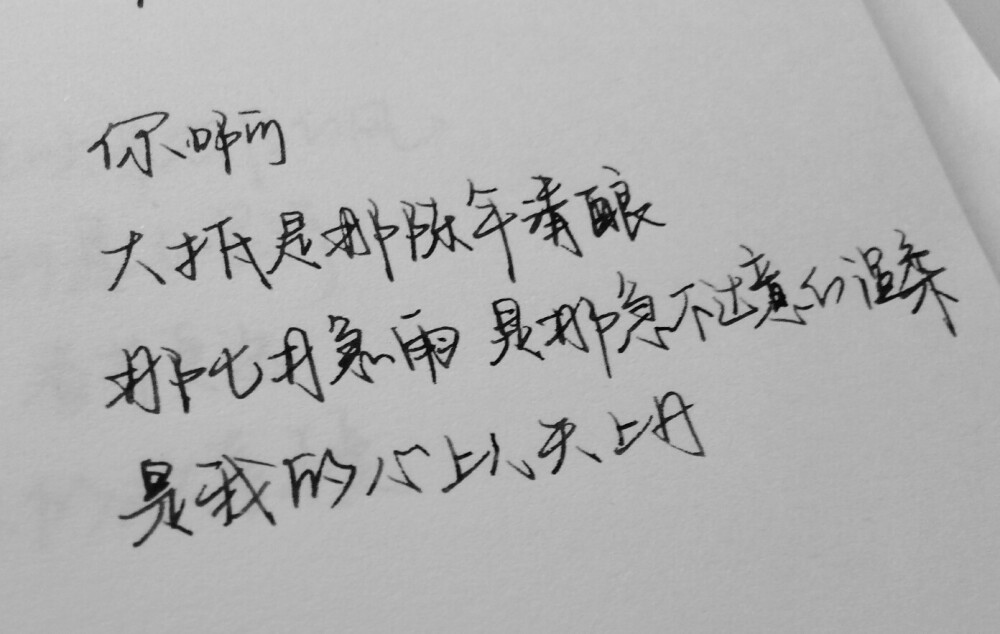 你啊
大抵是那陈年清酿
那七月急雨 是那急不达意的温柔
是我的心上人天上月